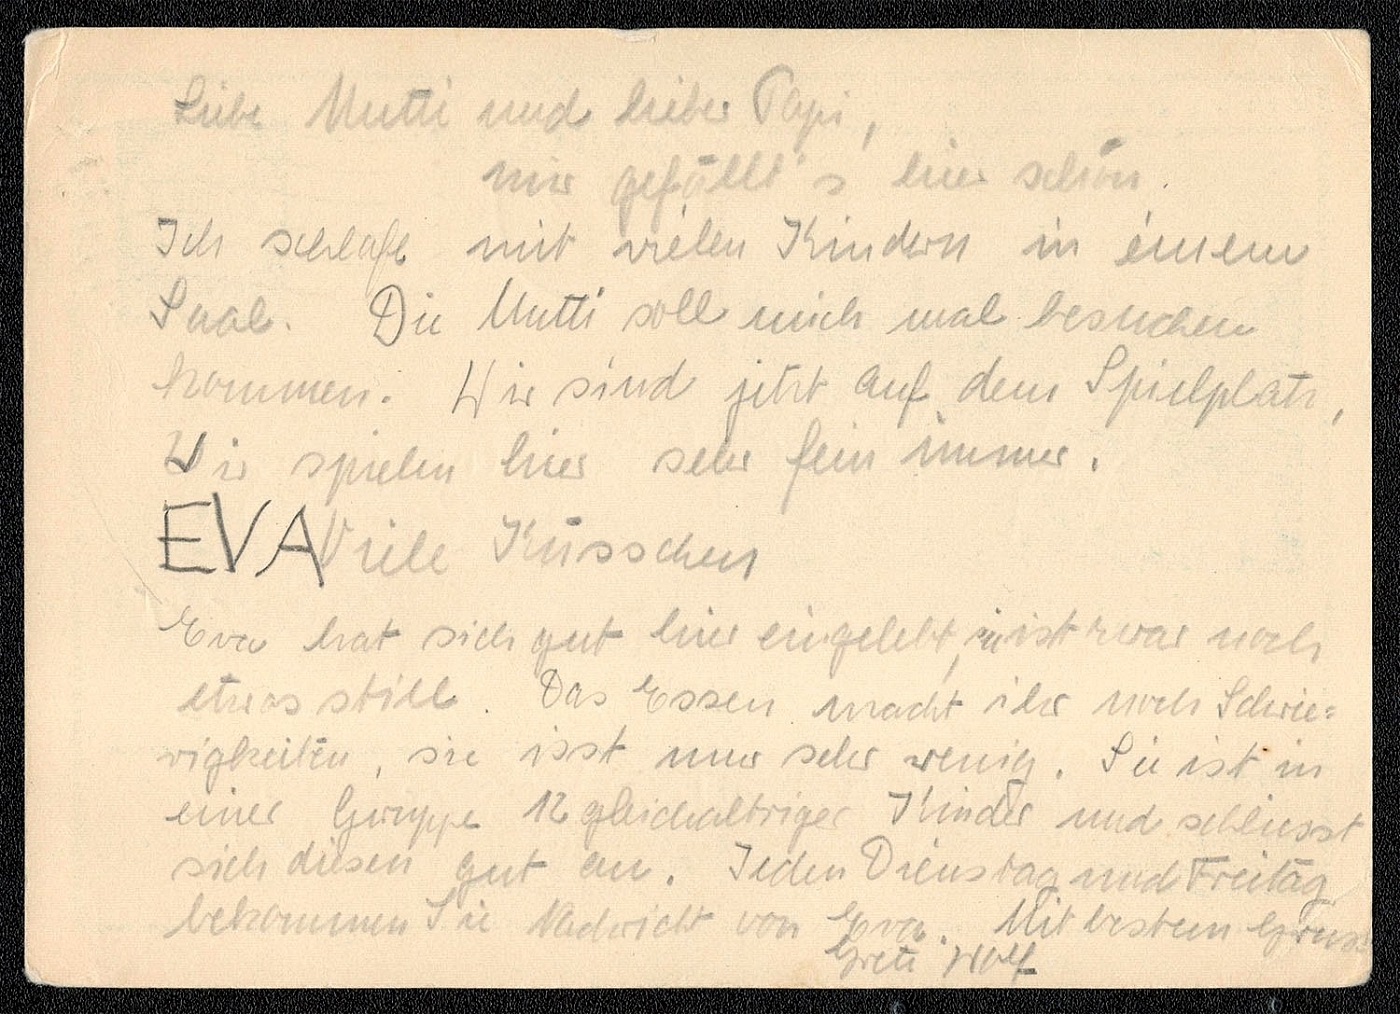 Liebe Mutti und lieber Papi,
mir gefällt's hier schön.
Ich schlafe mit vielen Kindern in einem
Saal. Die Mutti soll mich mal besuchen
kommen. Wir sind jetzt auf dem Spielplatz,
Wir spielen hier sehr fein immer.
EVA Viele Küsschen
Eva hat sich gut hier eingelebt, sie ist zwar noch
etwas still. Das Essen macht ihr noch Schwie=
rigkeiten, sie isst nur sehr wenig. Sie ist in
einer Gruppe 12 gleichaltriger Kinder und schliesst
sich diesen gut an. Jeden Dienstag und Freitag
bekommen Sie Nachricht von Eva. Mit bestem Gruss
Grete Wolf